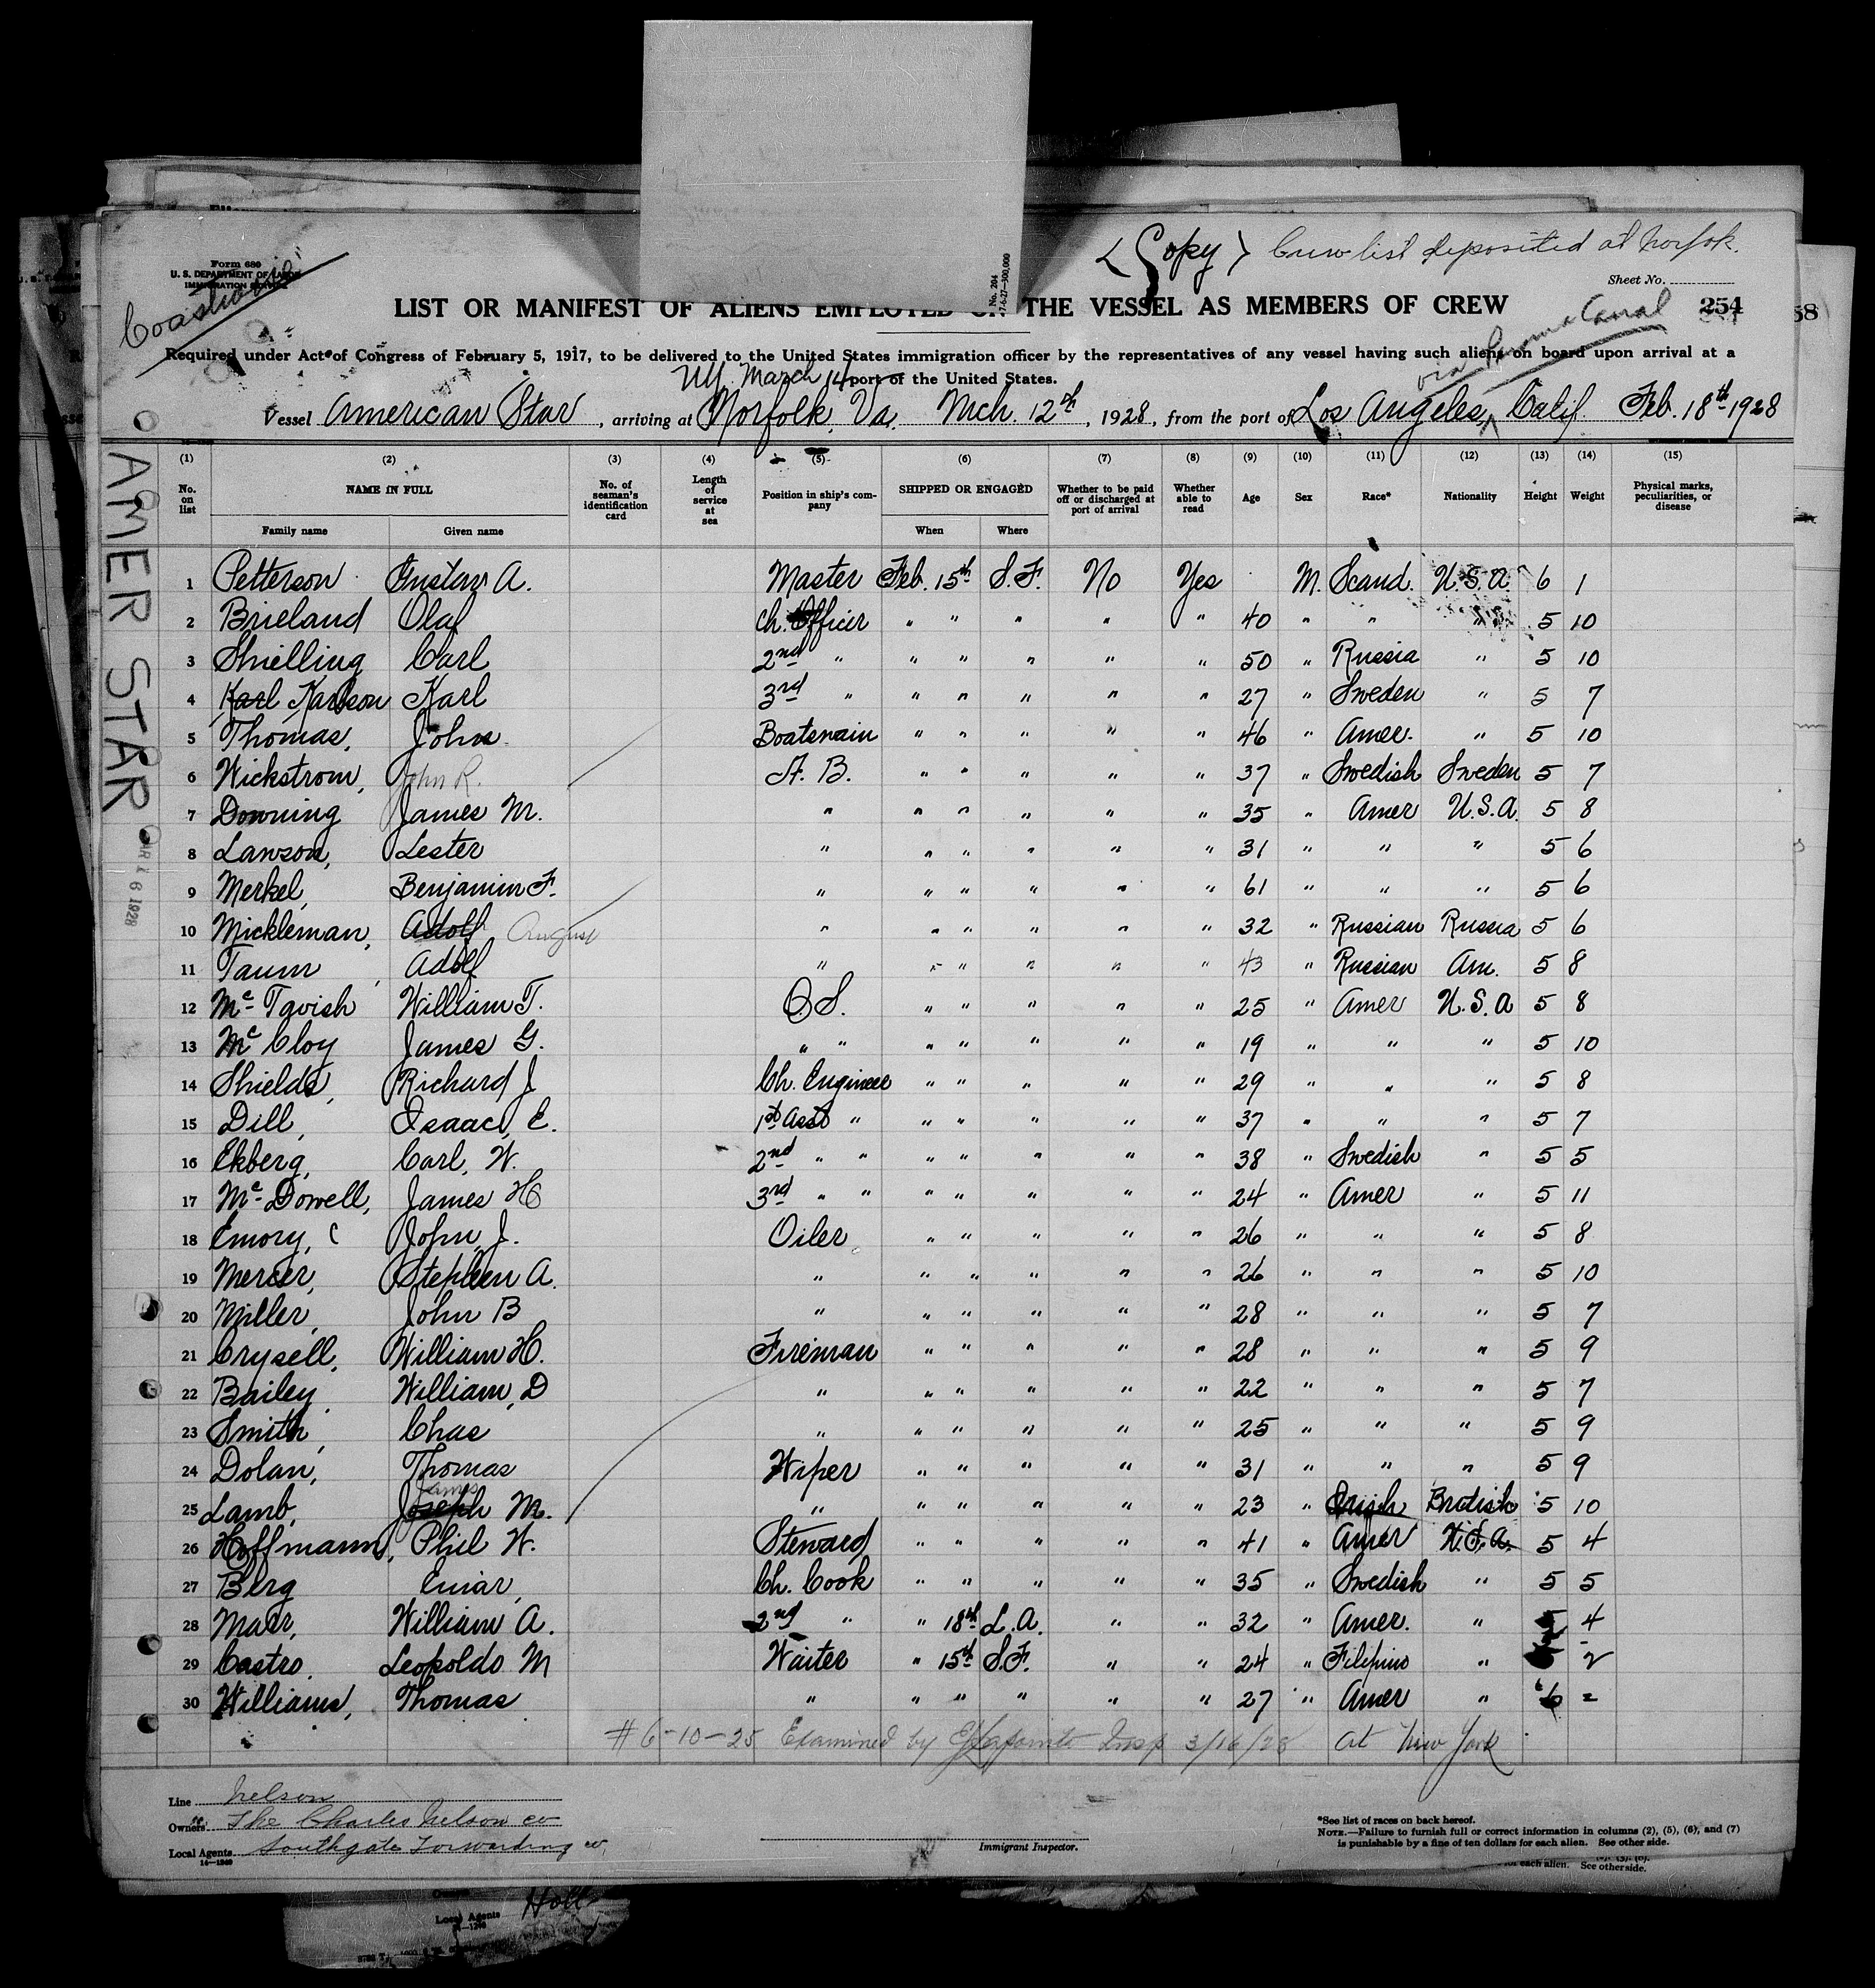 (Copy) Crew list deposited at Norfolk.
Form 680
U. S. DEPARTMENT OF LABOR
IMMIGRATION SERVICE
Coastwise
Sheet No.
No. 204
LIST OR MANIFEST OF ALIENS EMPLOYED ON THE VESSEL AS MEMBERS OF CREW
254
58
via Panama Canal
Required under Act of Congress of February 5, 1917, to be delivered to the United States immigration officer by the representatives of any vessel having such aliens on board upon arrival at a
port of the United States.
NY. March 14
Vessel American Star, arriving at Norfolk, Va. Mch. 12th, 1928, from the port of Los Angeles, Calif. Feb. 18th 1928
AMER STAR
(1) (2) (3) (4) (5) (6) (7) (8) (9) (10) (11) (12) (13) (14) (15)
No. on list NAME IN FULL No. of seaman's identification card Length of service at sea Position in ship's company SHIPPED OR ENGAGED Whether to be paid off or discharged at port of arrival Whether able to read Age Sex Race* Nationality Height Weight Physical marks, peculiarities, or disease
Family name Given name When Where
1 Petterson Gustav A. Master Feb. 15th S.F. No Yes M. Scand. U.S.A. 6 1
2 Brieland Olaf Ch. Officer " " " " " 40 " " " 5 10
3 Shielling Carl 2nd " " " " " " 50 " Russia " 5 10
4 Karl Karlson Karl 3rd " " " " " " 27 " Sweden " 5 7
5 Thomas, John Boatswain " " " " " 46 " Amer. " 5 10
6 Wickstrom, John R. A. B. " " " " " 37 " Swedish Sweden 5 7
7 Downing James M. " " " " " " 35 " Amer U.S.A. 5 8
8 Lawson, Lester " " " " " " 31 " " " 5 6
9 Merkel, Benjamin F. " " " " " " 61 " " " 5 6
10 Mickleman, Adolf August " " " " " " 32 " Russian Russia 5 6
11 Taum, Adolf " " " " " " 43 " Russian Am. 5 8
12 Mc Tavish William T. O.S. " " " " " 25 " Amer U.S.A 5 8
13 Mc Cloy James G. " " " " " " " 19 " " " 5 10
14 Shields, Richard J Ch. Engineer " " " " " 29 " " " 5 8
15 Dill, Isaac, E. 1st Asst " " " " " " 37 " " " 5 7
16 Ekberg, Carl, W. 2nd " " " " " " " 38 " Swedish " 5 5
17 Mc Dowell, James H 3rd " " " " " " " 24 " Amer " 5 11
18 Emory, C John, J. Oiler " " " " " 26 " " " 5 8
19 Mercer, Stephen A. " " " " " " 26 " " " 5 10
20 Miller, John B " " " " " " 28 " " " 5 7
21 Crysell, William H. Fireman " " " " " 28 " " " 5 9
22 Bailey, William, D " " " " " " 22 " " " 5 7
23 Smith, Chas " " " " " " 25 " " " 5 9
24 Dolan, Thomas Wiper " " " " " 31 " " " 5 9
James
25 Lamb, Joseph M. " " " " " " 23 " Irish British 5 10
26 Hoffmann, Phil W. Steward " " " " " 41 " Amer U.S.A. 5 4
27 Berg Einar, Ch. Cook " " " " " 35 " Swedish " 5 5
28 Marr, William A. 2nd " " 18th L.A. " " 32 " Amer. " 5 4
29 Castro. Leopoldo M Waiter " 15th S.F. " " 24 " Filipino " 2
30 Williams, Thomas " " " " " " 27 " Amer " 6 =
#6-10-25 Examined by Insp 3/16/28 at New York
Line Nelson
Owners The Charles Nelson co
Local Agents Southgate Forwarding co.
14—1240
Immigrant Inspector.
*See list of races on back hereof.
NOTE.—Failure to furnish full or correct information in columns (2), (5), (6), and (7)
is punishable by a fine of ten dollars for each alien. See other side.
for each alien. See other side.
Local Agents